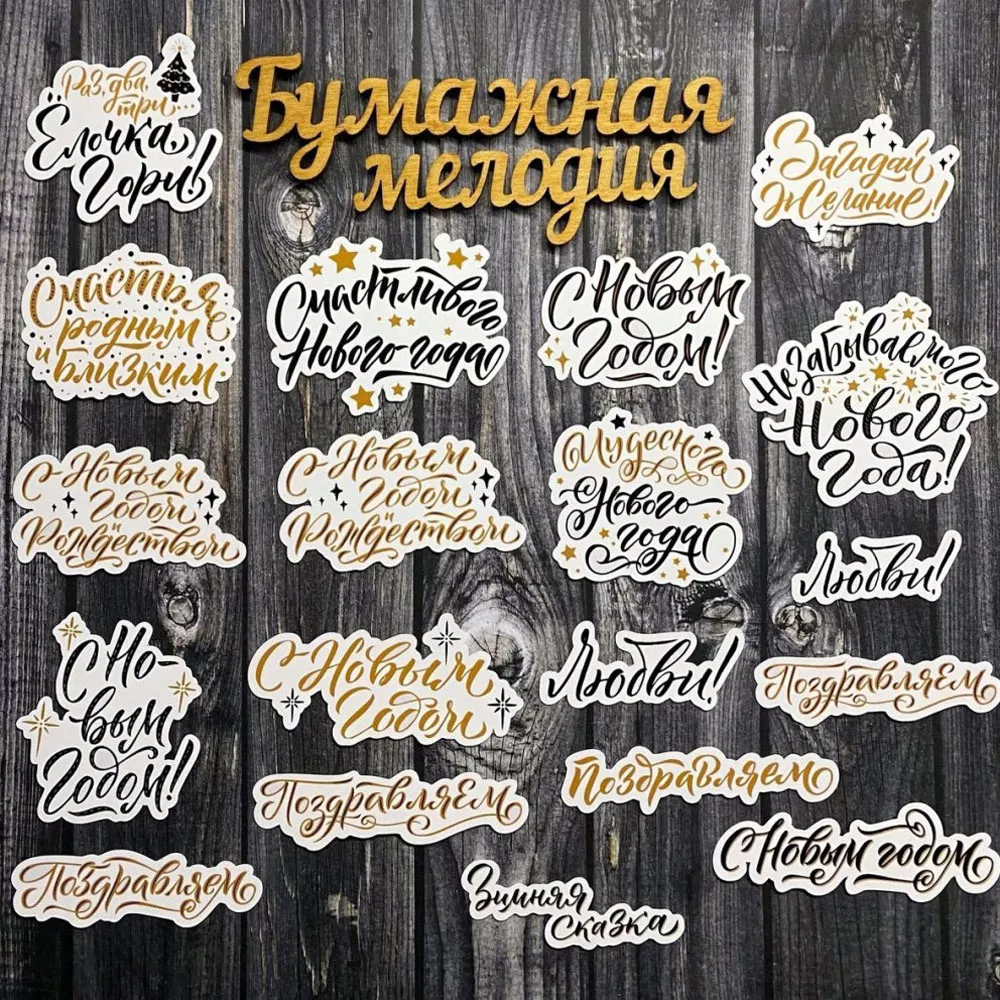 Раз, два,
три...
Ёлочка,
Гори!
Бумажная
мелодия
Загадай
Желание!
Счастья
родным
и Близким
Счастливого
Нового-года
С Новым
Годом!
Незабываемого
Нового
Года!
С-Новым
Годом
и
Рождеством
С-Новым
Годом
и
Рождеством
Чудесного
Нового-
года
Любви!
С Но-
вым
Годом!
С-Новым
Годом
Любви!
Поздравляем
Поздравляем
Поздравляем
С Новым годом
Поздравляем
Зимняя
сказка